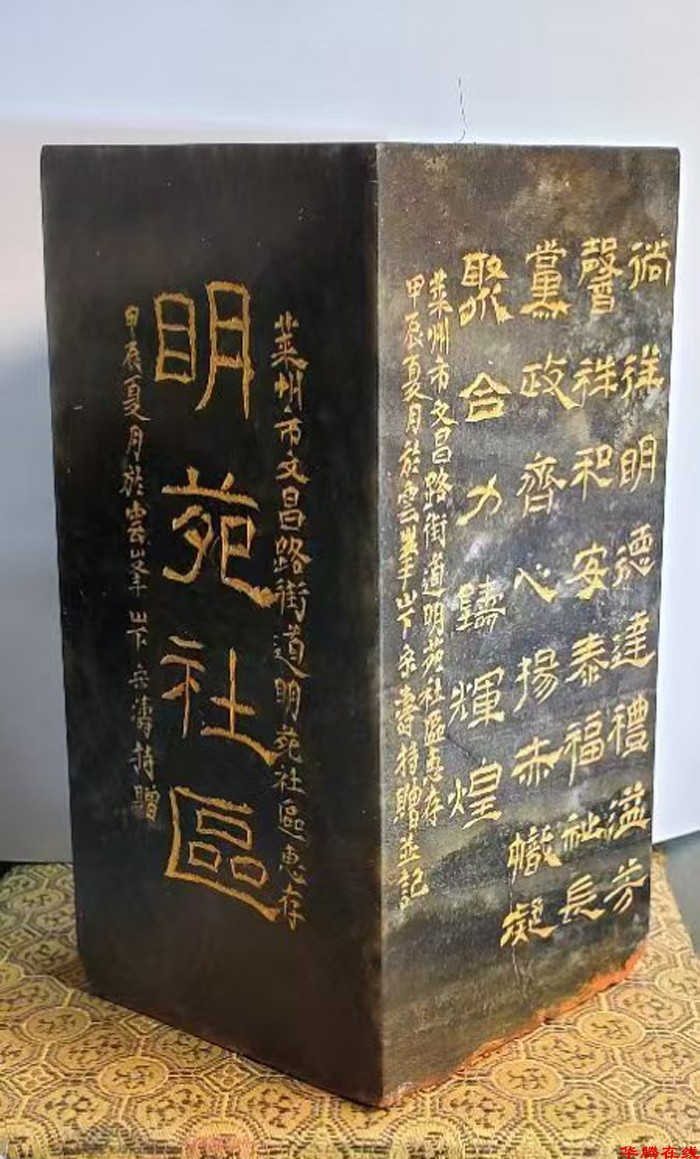 徜徉明德達禮溢芳
馨祥和安泰福祉長
黨政齊心揚赤幟凝
聚合力鑄輝煌
莱州市文昌路街道明苑社區惠存
甲辰夏月於雲峯山下持贈並記
莱州市文昌路街道明苑社區惠存
明苑社區
甲辰夏月於雲峯山下持贈
华腾在线